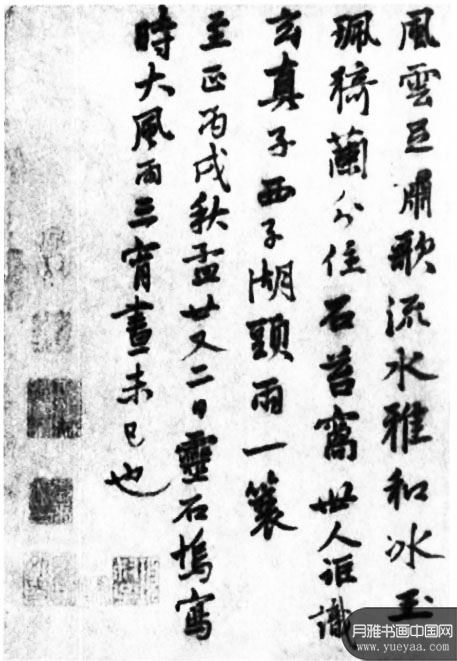 風雲歌流水雅和冰玉
珮猗蘭分住石苔窩世人詎識
玄真子西子湖頭雨一簑
至正丙戌秋孟廿又二日靈石塢寫
時大風雨三宵晝未已也
月雅书画中国网
www.yueyaa.com